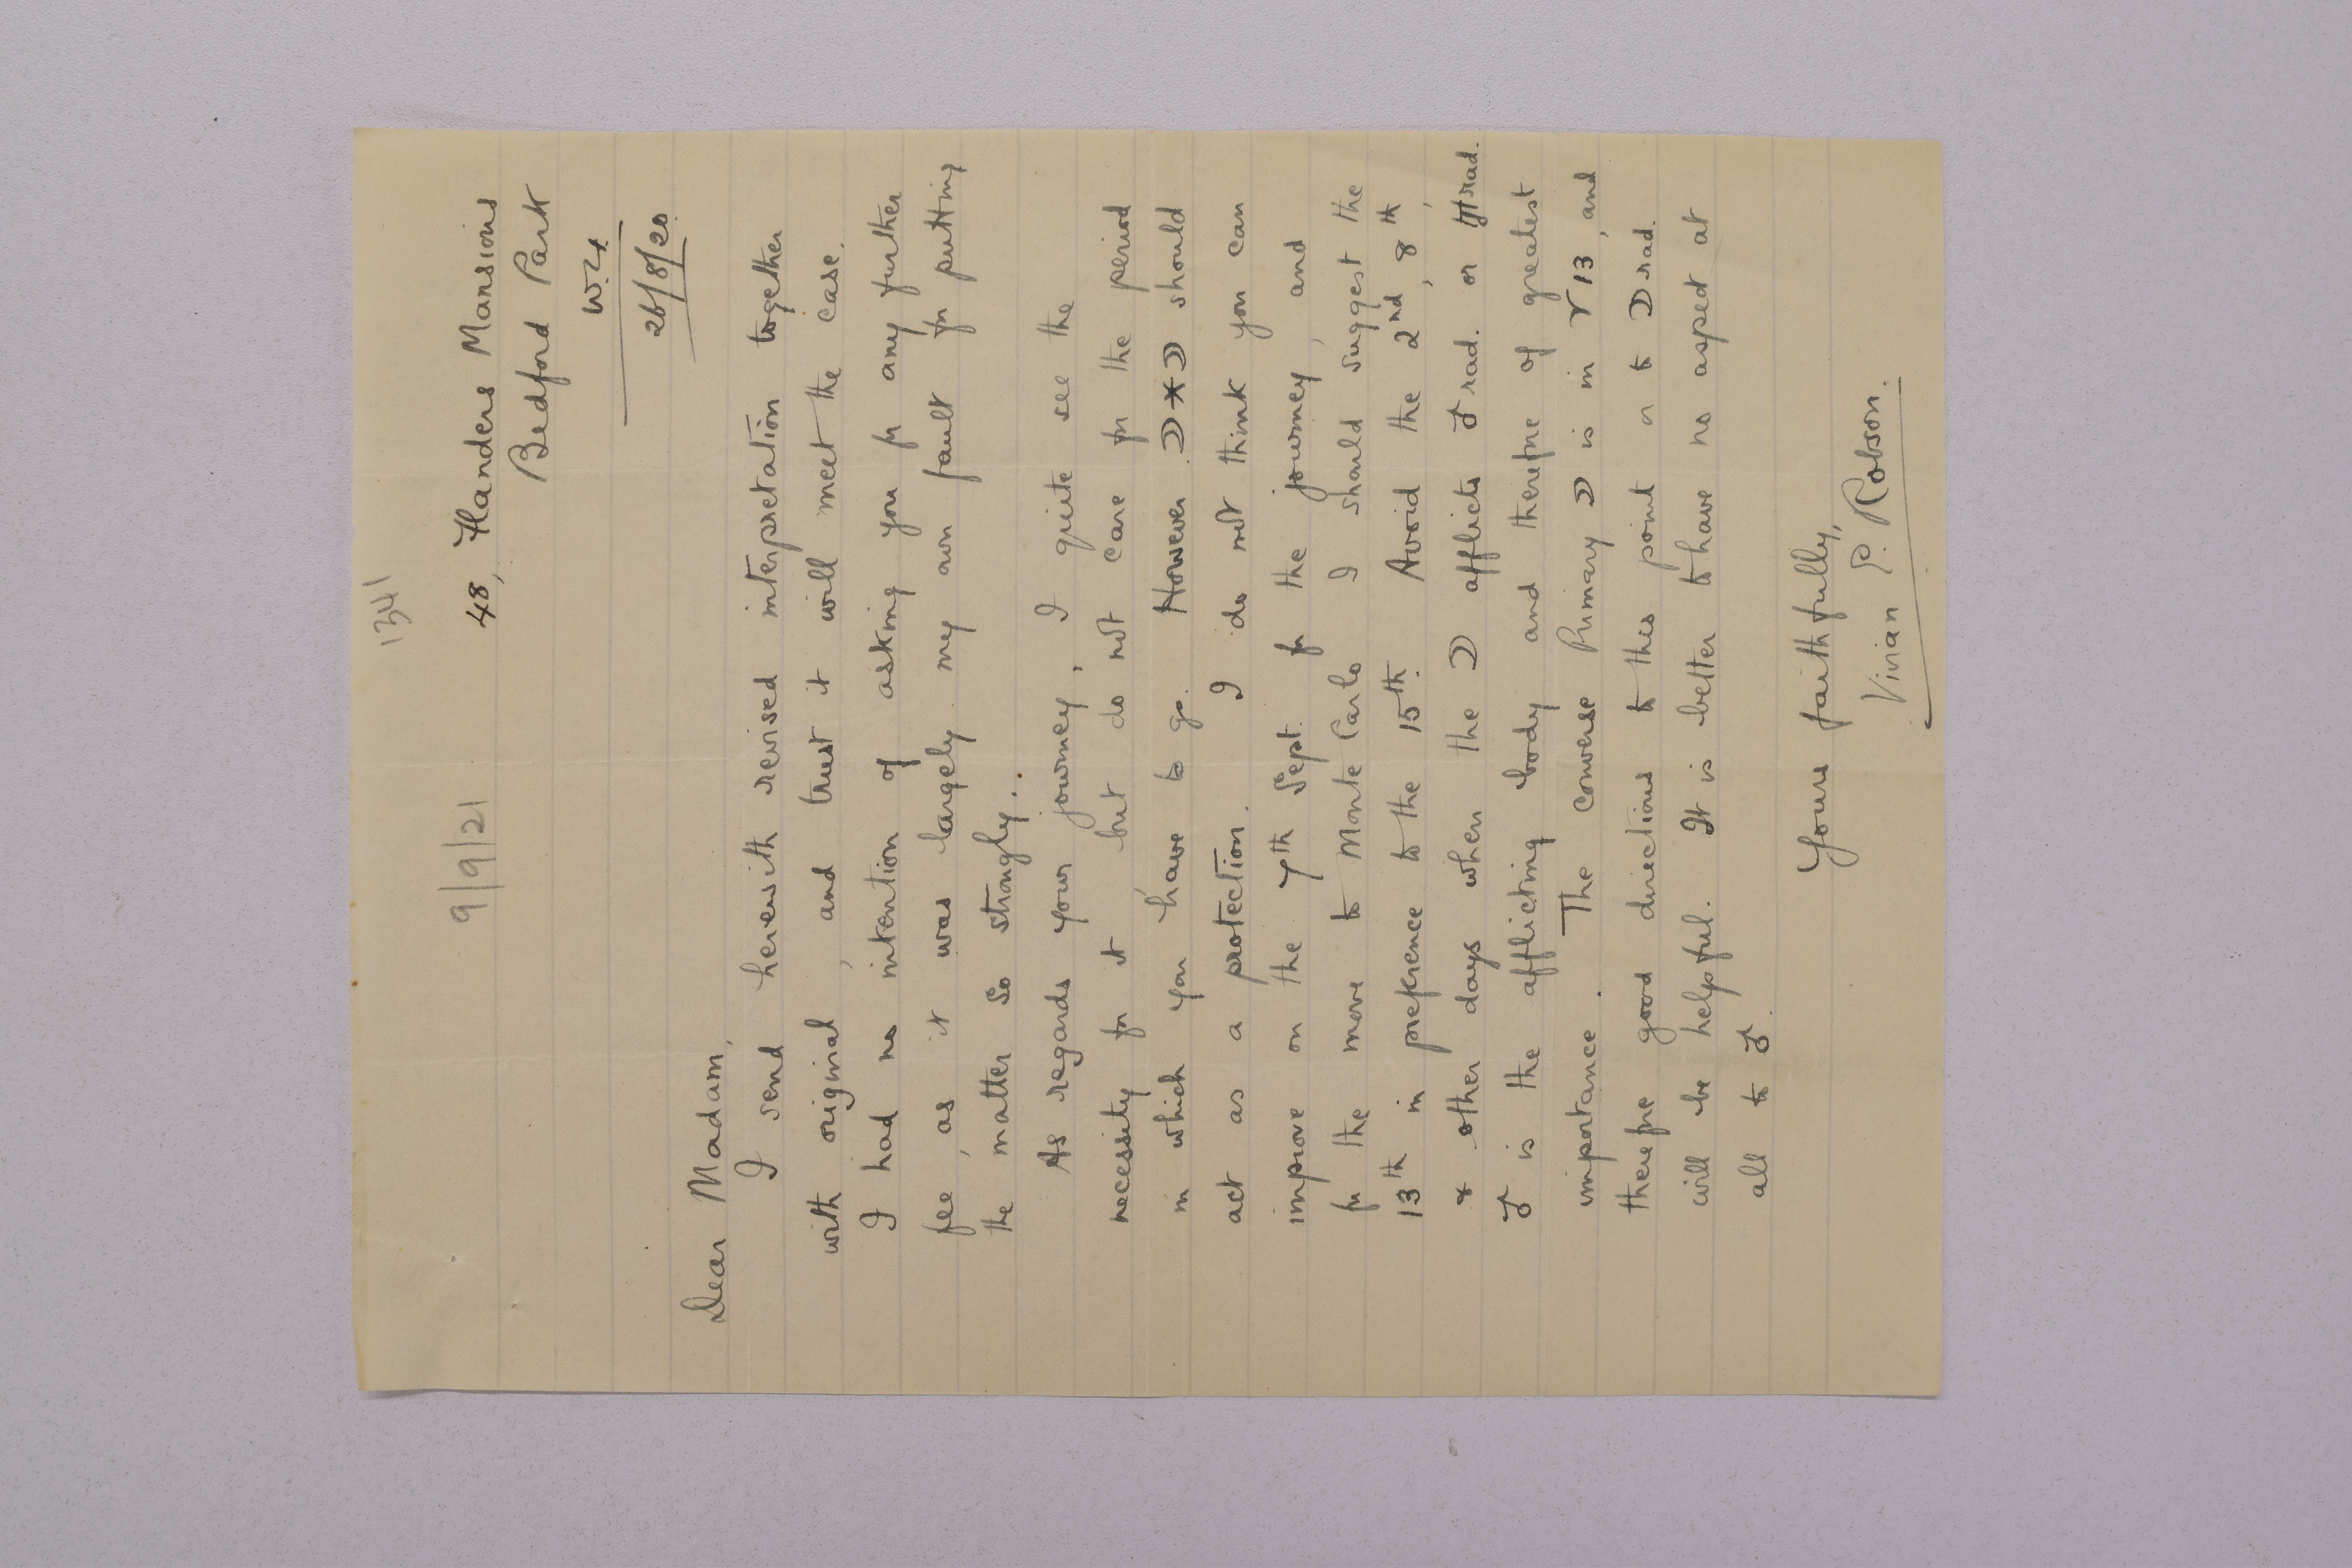 1341
9/9/21
48, Flanders Mansions
Bedford Park
W.4.
26/8/20
Dear Madam,
I send herewith revised interpretation together
with original, and trust it will meet the case.
I had no intention of asking you for any further
fee, as it was largely my own fault for putting
the matter so strongly.
As regards your journey, I quite see the
necessity for it but do not care for the period
in which you have to go. However ☽ ⚹ ☽ should
act as a protection. I do not think you can
improve on the 7th Sept. for the journey, and
for the move to Monte Carlo I should suggest the
13th in preference to the 15th. Avoid the 2nd, 8th,
& other days when the ☽ afflicts ♂ rad. or ♅ rad.
♂ is the afflicting body and therefore of greatest
importance. The converse Primary ☽ is in ♈ 13, and
therefore good directions to this point or to ☽ rad.
will be helpful. It is better to have no aspect at
all to ♂.
Yours faithfully,
Vivian E. Robson.